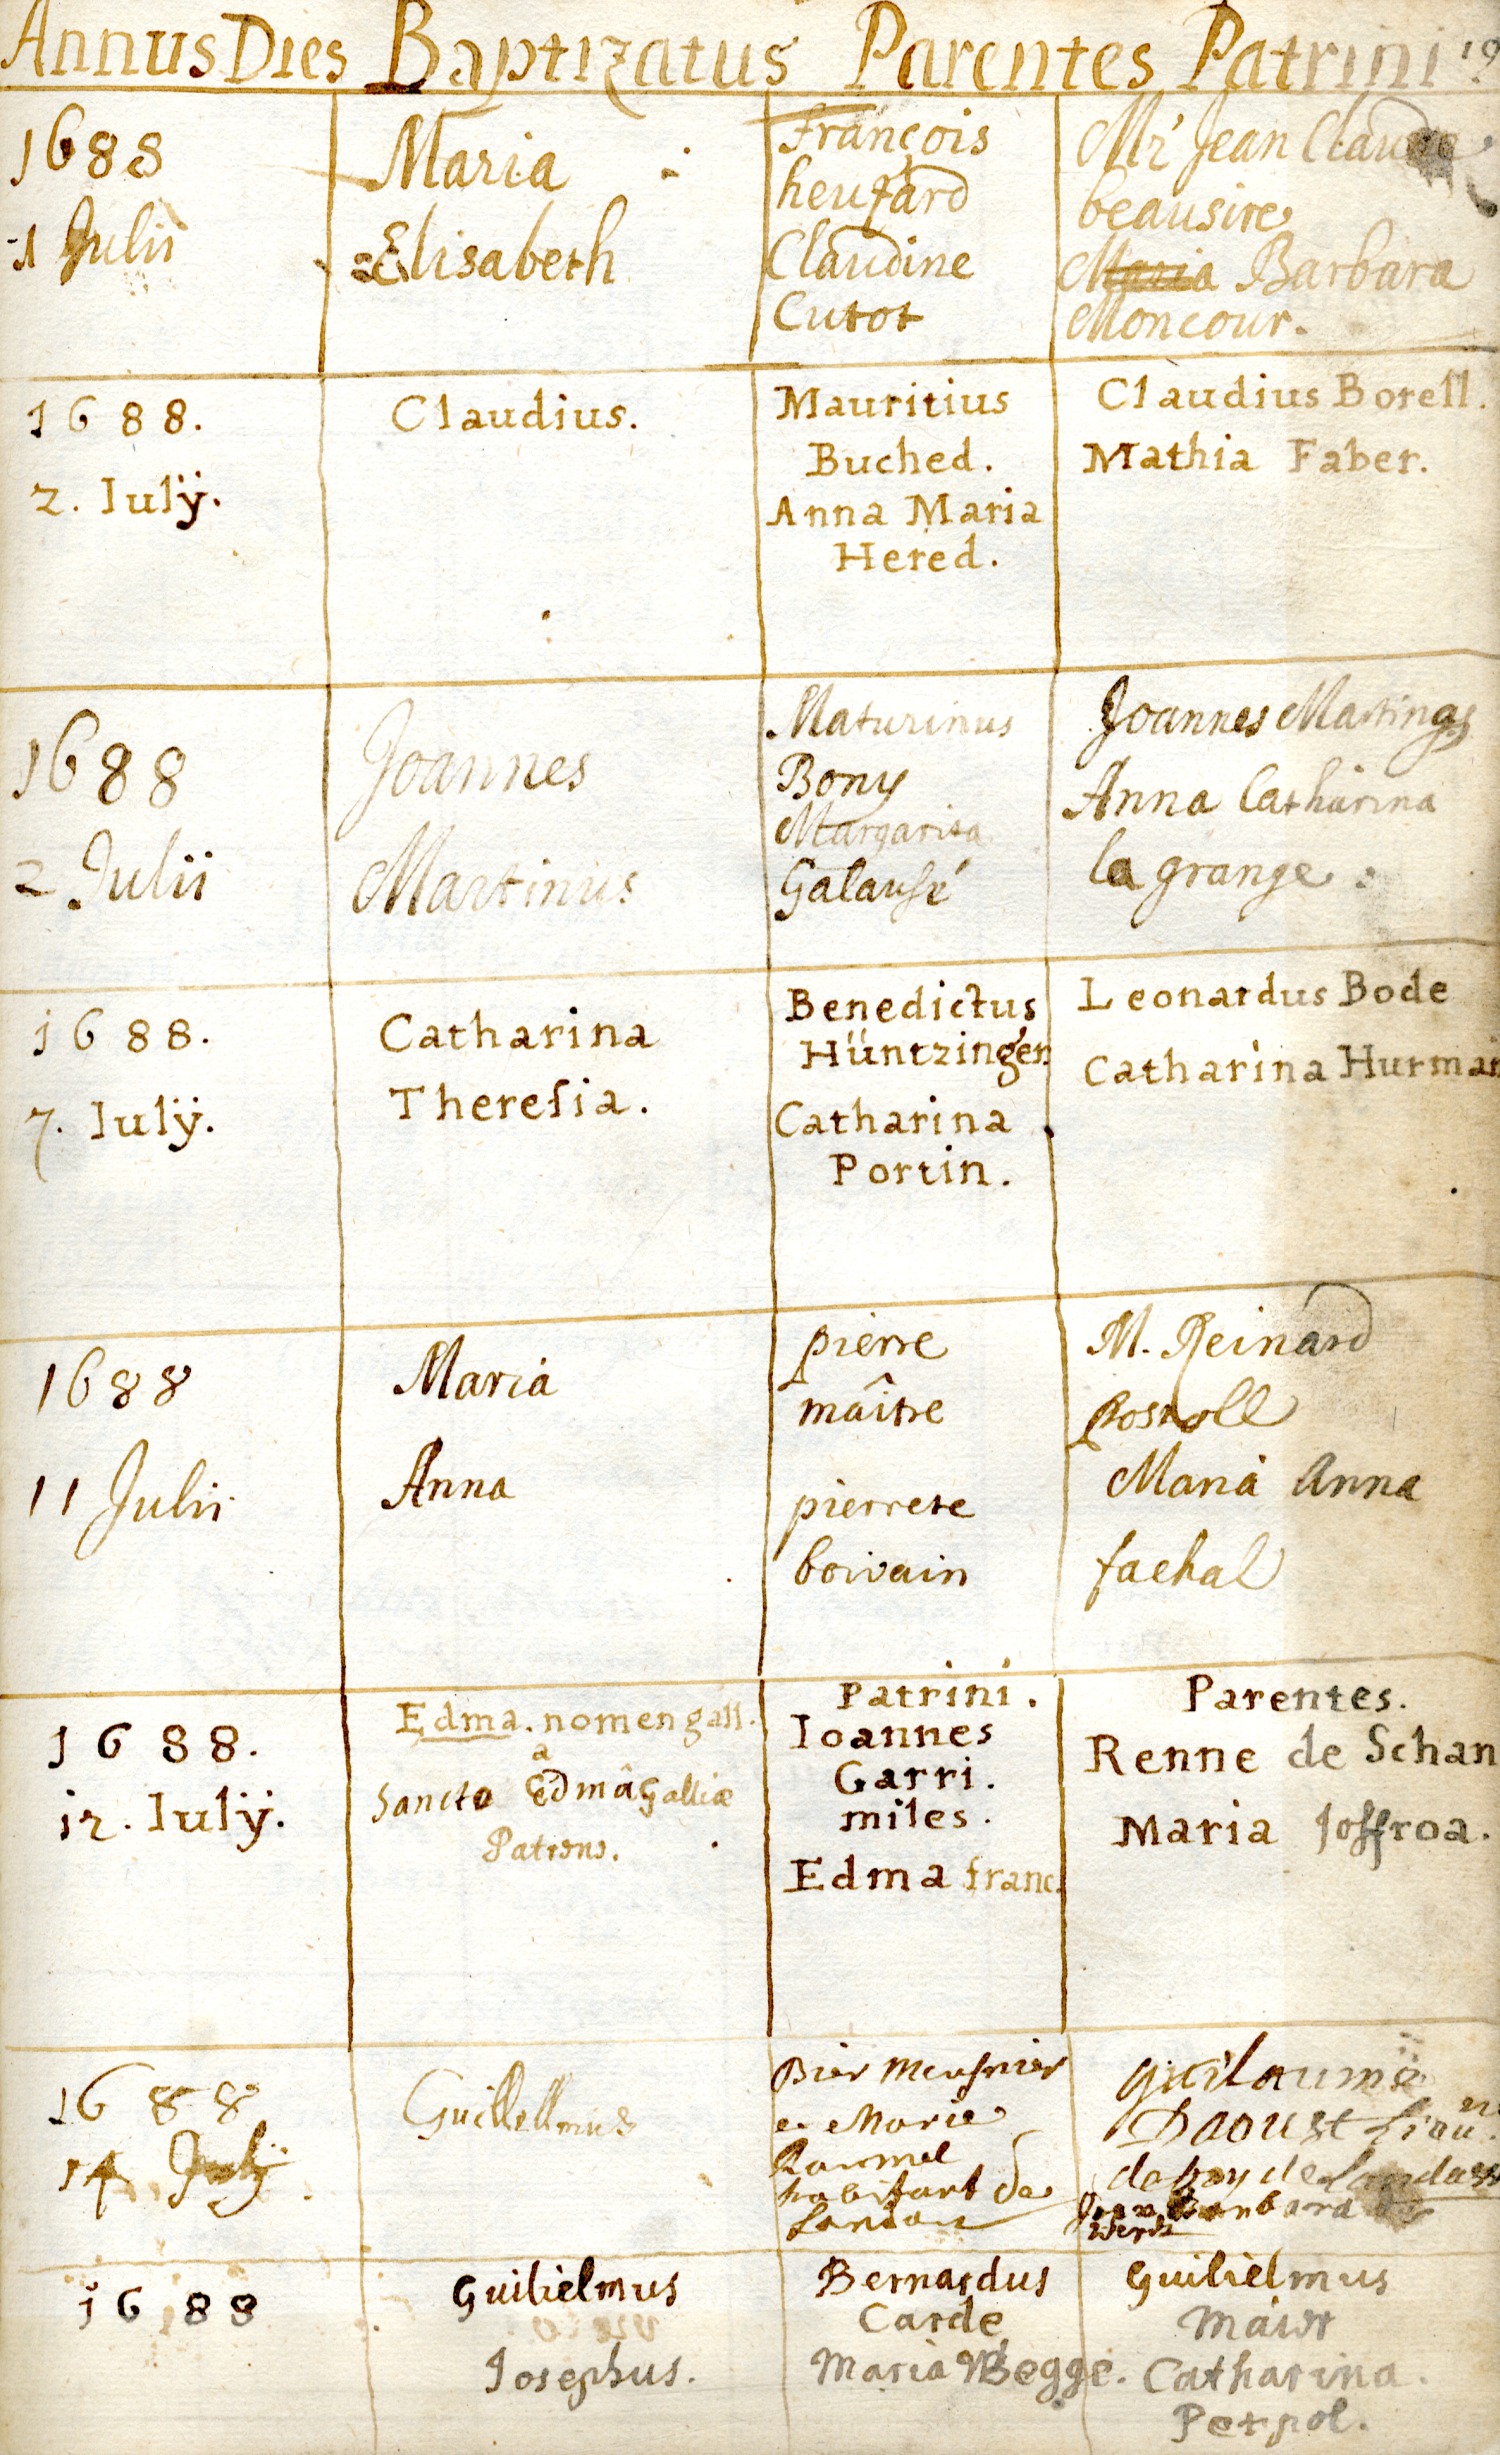 Annus Dies Baptizatus Parentes Patrini 19
1688
1 Julii
Maria
Elisabeth
François
heuzard
Claudine
Cutot
Mr Jean Claude
beausire
Maria Barbara
Moncour.
1688.
2. Iulÿ.
Claudius.
Mauritius
Buched.
Anna Maria
Hered.
Claudius Borell.
Mathia Faber.
1688
2 Julii
Joannes
Martinus
Maturinus
Bony
Margarita
Galausé
Joannes Martinus
Anna Catharina
la grange
1688.
7. Iulÿ.
Catharina
Theresia.
Benedictus
Hüntzinger
Catharina
Portin.
Leonardus Bode
Catharina Hurman
1688
11 Julii
Maria
Anna
pierre
maître
pierrete
boivain
M. Reinard
Rosnoll
Maria Anna
fachal
1688.
12. Iulÿ.
Edma. nomen gall.
a
Sancto Edmâ Galliæ
Patrono.
Patrini.
Ioannes
Garri.
miles.
Edma franc.
Parentes.
Renne de Schan
Maria Joffroa.
1688
14 July
Guillellmus
Bier Meusnier
et Marie
habitant de
Landau
guilaume
Daoust lieu
1688
Guilielmus
Iosephus.
Bernardus
Carde
Maria Begge.
Guilielmus
Maior
Catharina.
Petpol.